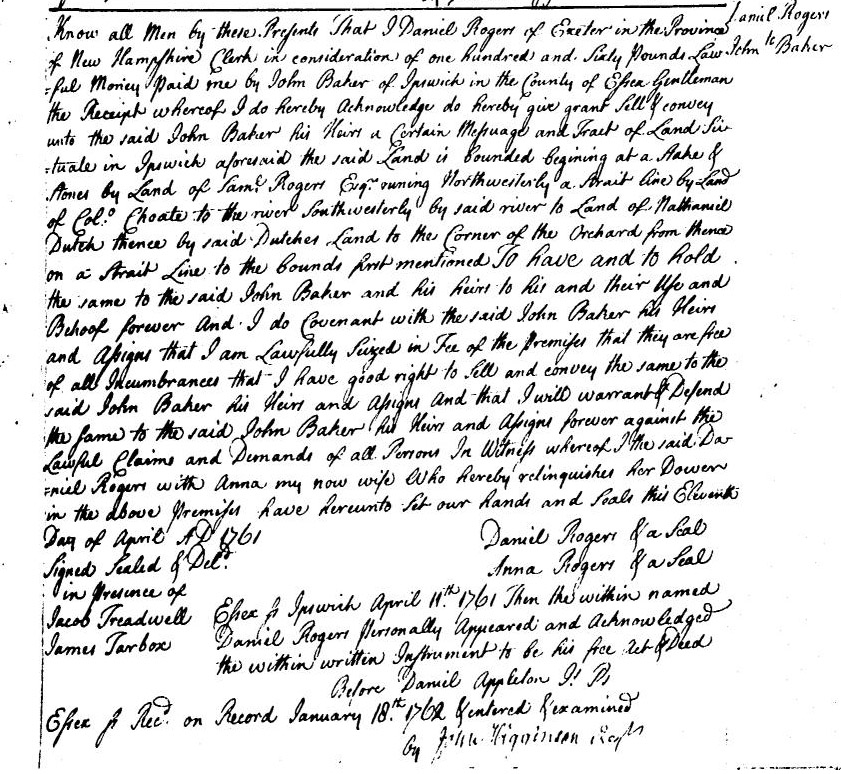 Know all Men by these Presents That I Daniel Rogers of Exeter in the Province
Daniel Rogers
of New Hampshire Clerk in consideration of one hundred and Sixty Pounds Law
John Baker
=ful Money Paid me by John Baker of Ipswich in the County of Essex Gentleman
the Receipt whereof I do hereby Acknowledge do hereby give grant Sell & convey
unto the said John Baker his Heirs a Certain Messuage and Tract of Land Si-
=tuate in Ipswich aforesaid the said Land is bounded begining at a Stake &
Stones by Land of Sam.l Rogers Esq.r runing Northwesterly a Strait line by Land
of Col.o Choate to the river Southwesterly by said river to Land of Nathaniel
Dutch thence by said Dutches Land to the Corner of the Orchard from thence
on a Strait Line to the bounds first mentioned To have and to hold
the same to the said John Baker and his heirs to his and their Use and
Behoof forever And I do Covenant with the said John Baker his Heirs
and Assigns that I am Lawfully Seized in Fee of the Premises that they are free
of all Incumbrances that I have good right to Sell and convey the same to the
said John Baker his Heirs and Assigns And that I will warrant & Defend
the same to the said John Baker his Heirs and Assigns forever against the
Lawful Claims and Demands of all Persons In Witness whereof I the said Da-
=niel Rogers with Anna my now wife Who hereby relinquishes her Dower
in the above Premises have hereunto Set our hands and Seals this Eleventh
Day of April AD 1761
Daniel Rogers & a Seal
Signed Sealed & Del.d
Anna Rogers & a Seal
in Presence of
Jacob Treadwell
James Tarbox
Essex ss Ipswich April 11.th 1761 Then the within named
Daniel Rogers Personally Appeared and Acknowledged
the within written Instrument to be his free Act & Deed
Before Daniel Appleton J.s Ps
Essex ss Rec.d on Record January 18.th 1762 & entered & examined
by John Higginson Reg.r